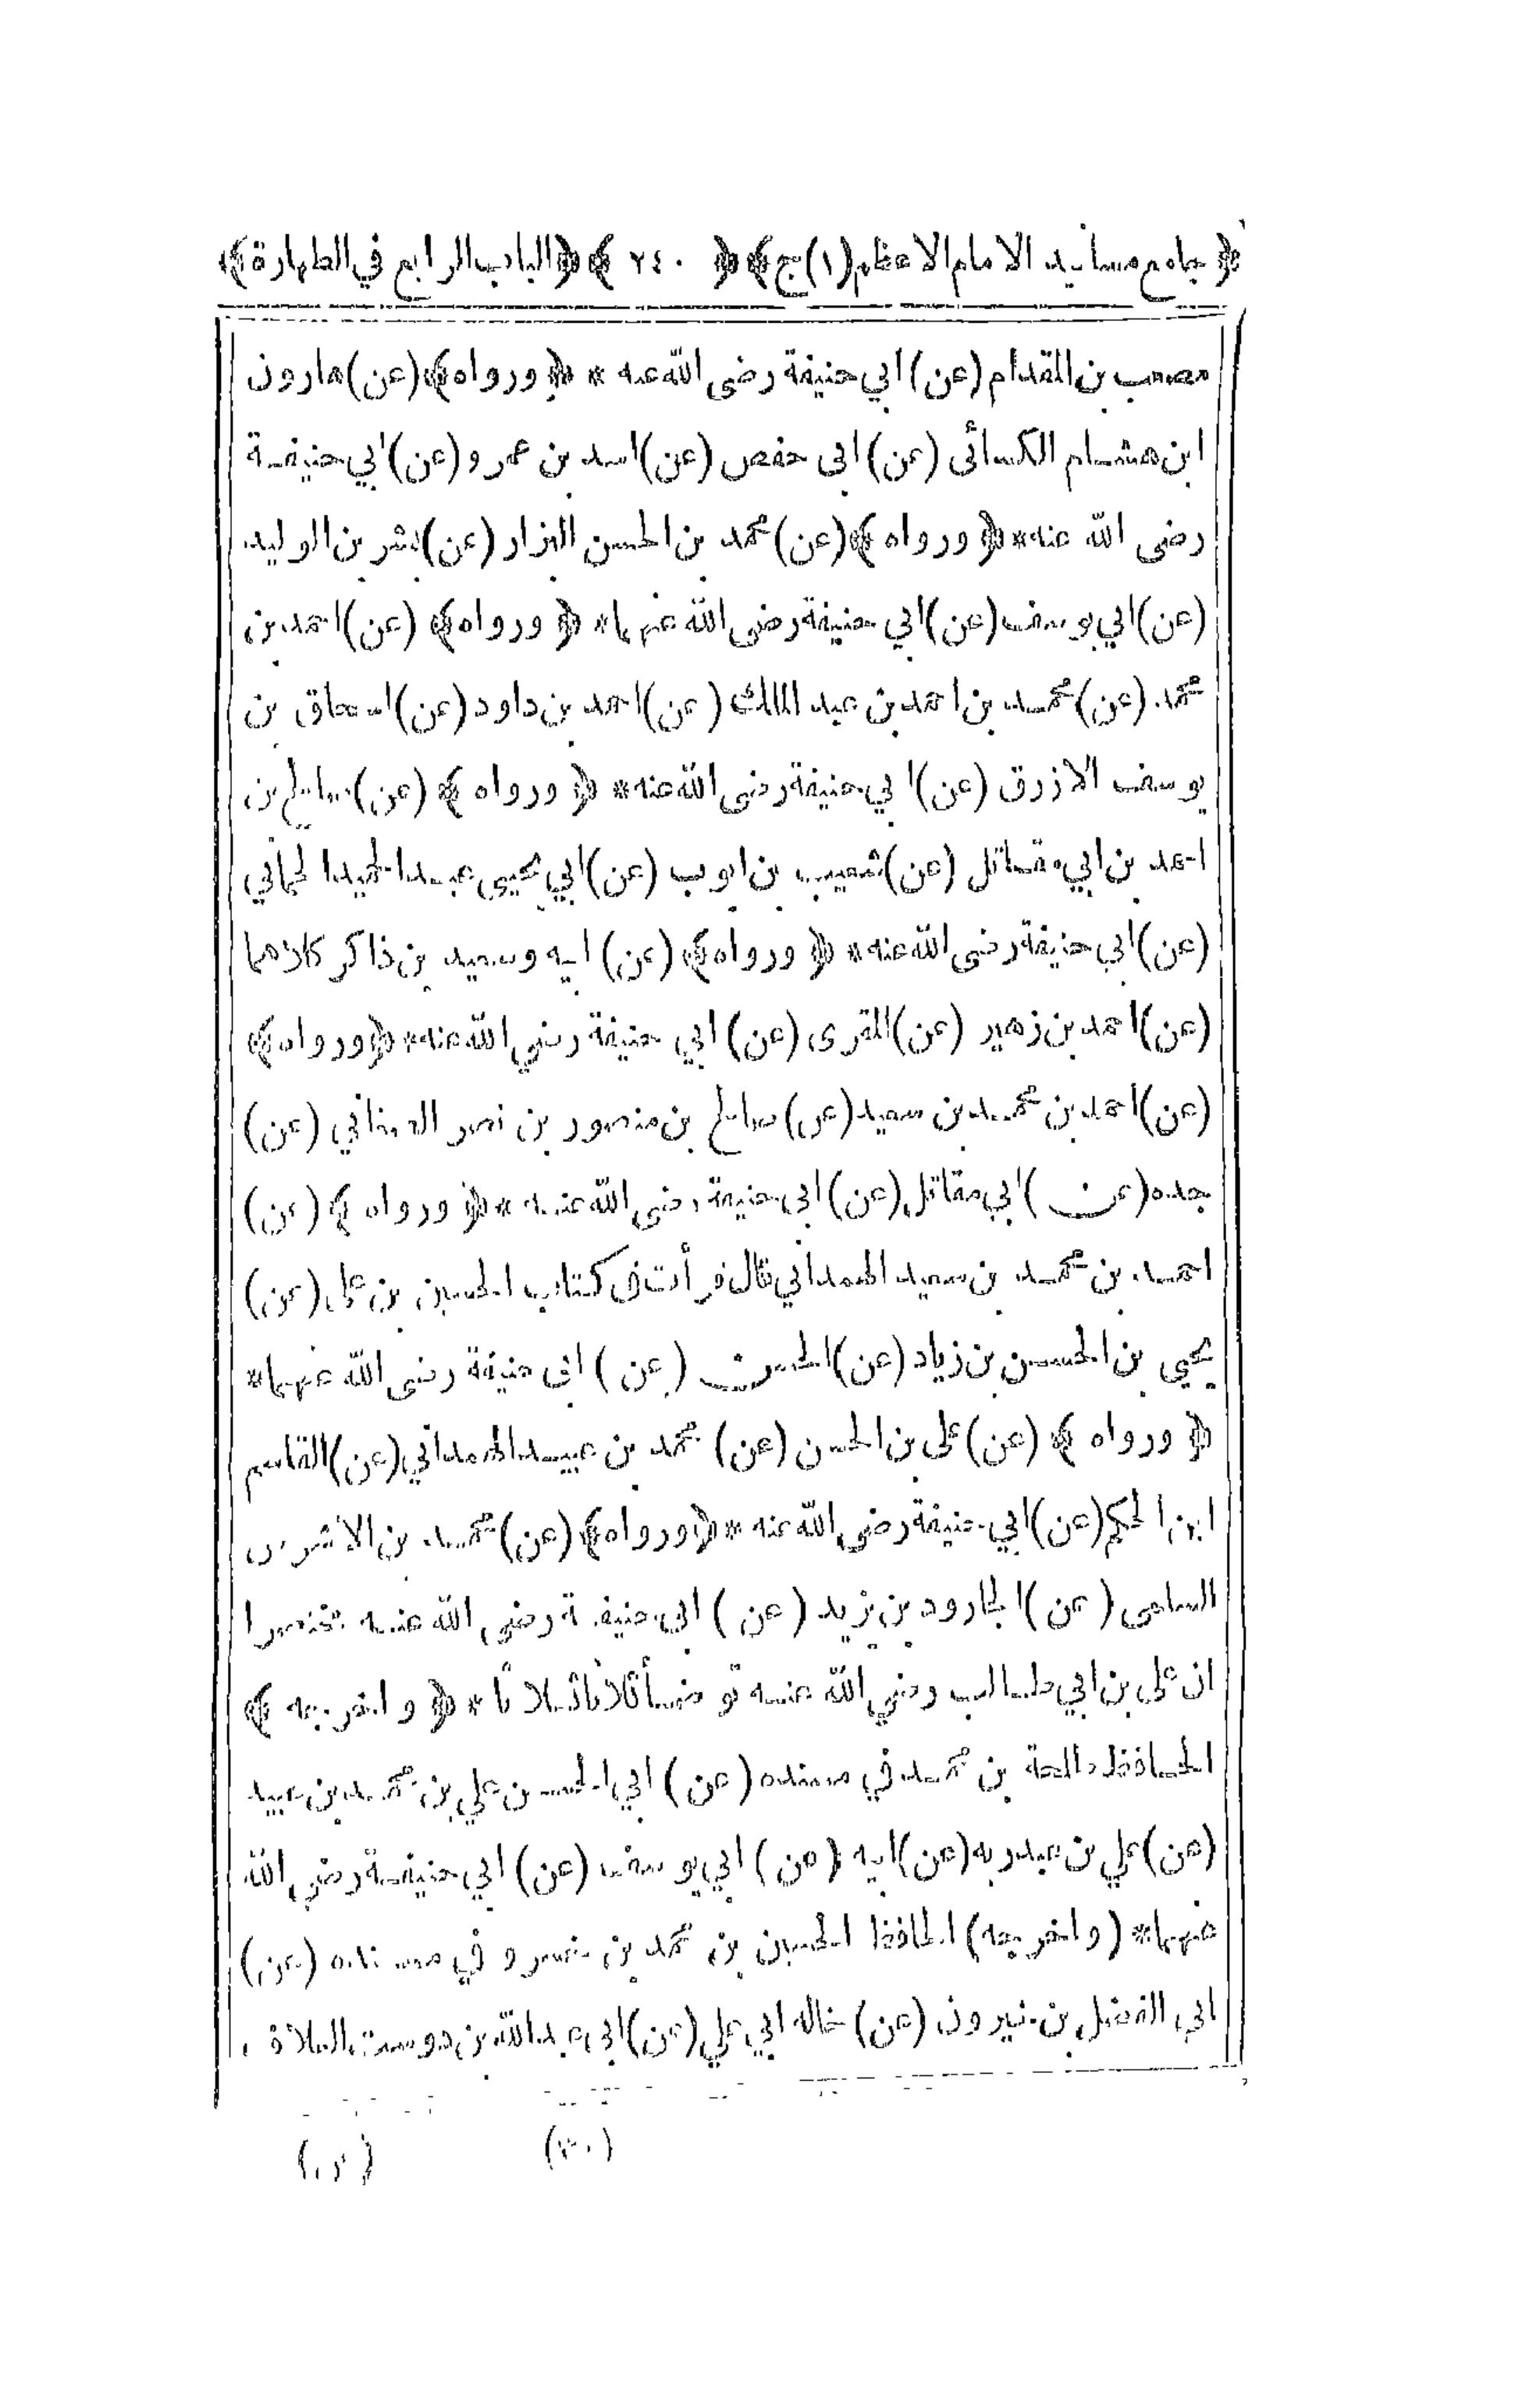 ﴿ جامع مسانيد الامام الاعظم (١) ج ﴾ ﴿ ٢٤٠ ﴾ ﴿ الباب الرابع في الطهارة ﴾
مصعب بن المقدام (عن) ابي حنيفة رضى الله عنه * ﴿ ورواه ﴾ (عن) هارون
ابن هشام الكسائى (عن) ابى حفص (عن) اسد بن عمرو (عن) ابي حنيفة
رضى الله عنه * ﴿ ورواه ﴾ (عن) محمد بن الحسن البزار (عن) بشر بن الوليد
(عن) ابي يوسف (عن) ابي حنيفة رضى الله عنهما * ﴿ ورواه ﴾ (عن) احمد بن
محمد (عن) محمد بن احمد بن عبد الملك (عن) احمد بن داود (عن) اسحاق بن
يوسف الازرق (عن) ابي حنيفة رضى الله عنه * ﴿ ورواه ﴾ (عن) صالح بن
احمد بن ابي مقاتل (عن) شعيب بن ايوب (عن) ابي يحيى عبد الحميد الحماني
(عن) ابي حنيفة رضى الله عنه * ﴿ ورواه ﴾ (عن) ابيه وسعيد بن ذاكر كلاهما
(عن) احمد بن زهير (عن) المقرى (عن) ابي حنيفة رضي الله عنه * ﴿ ورواه ﴾
(عن) احمد بن محمد بن سعيد (عن) صالح بن منصور بن نصر الصغاني (عن)
جده (عن) ابي مقاتل (عن) ابى حنيفة رضى الله عنه * ﴿ ورواه ﴾ (عن)
احمد بن محمد بن سعيد الهمداني قال قرأت فى كتاب الحسين بن على (عن)
يحيى بن الحسن بن زياد (عن) الحسن (عن) ابى حنيفة رضى الله عنهما *
﴿ ورواه ﴾ (عن) على بن الحسن (عن) محمد بن عبيد الهمداني (عن) القاسم
ابن الحكم (عن) ابي حنيفة رضى الله عنه * ﴿ ورواه ﴾ (عن) محمد بن الاشرس
السلمى (عن) الجارود بن يزيد (عن) ابى حنيفة رضى الله عنه مختصرا
ان على بن ابي طالب رضي الله عنه توضأ ثلاثا ثلاثا * ﴿ واخرجه ﴾
الحافظ طلحة بن محمد في مسنده (عن) ابي الحسن علي بن محمد بن عبيد
(عن) علي بن عبد ربه (عن) ابيه (عن) ابي يوسف (عن) ابي حنيفة رضى الله
عنهما * (واخرجه) الحافظ الحسين بن محمد بن خسرو في مسنده (عن)
ابي الفضل بن خيرون (عن) خاله ابي علي (عن) ابى عبد الله بن دوست العلاف
(٣٠)